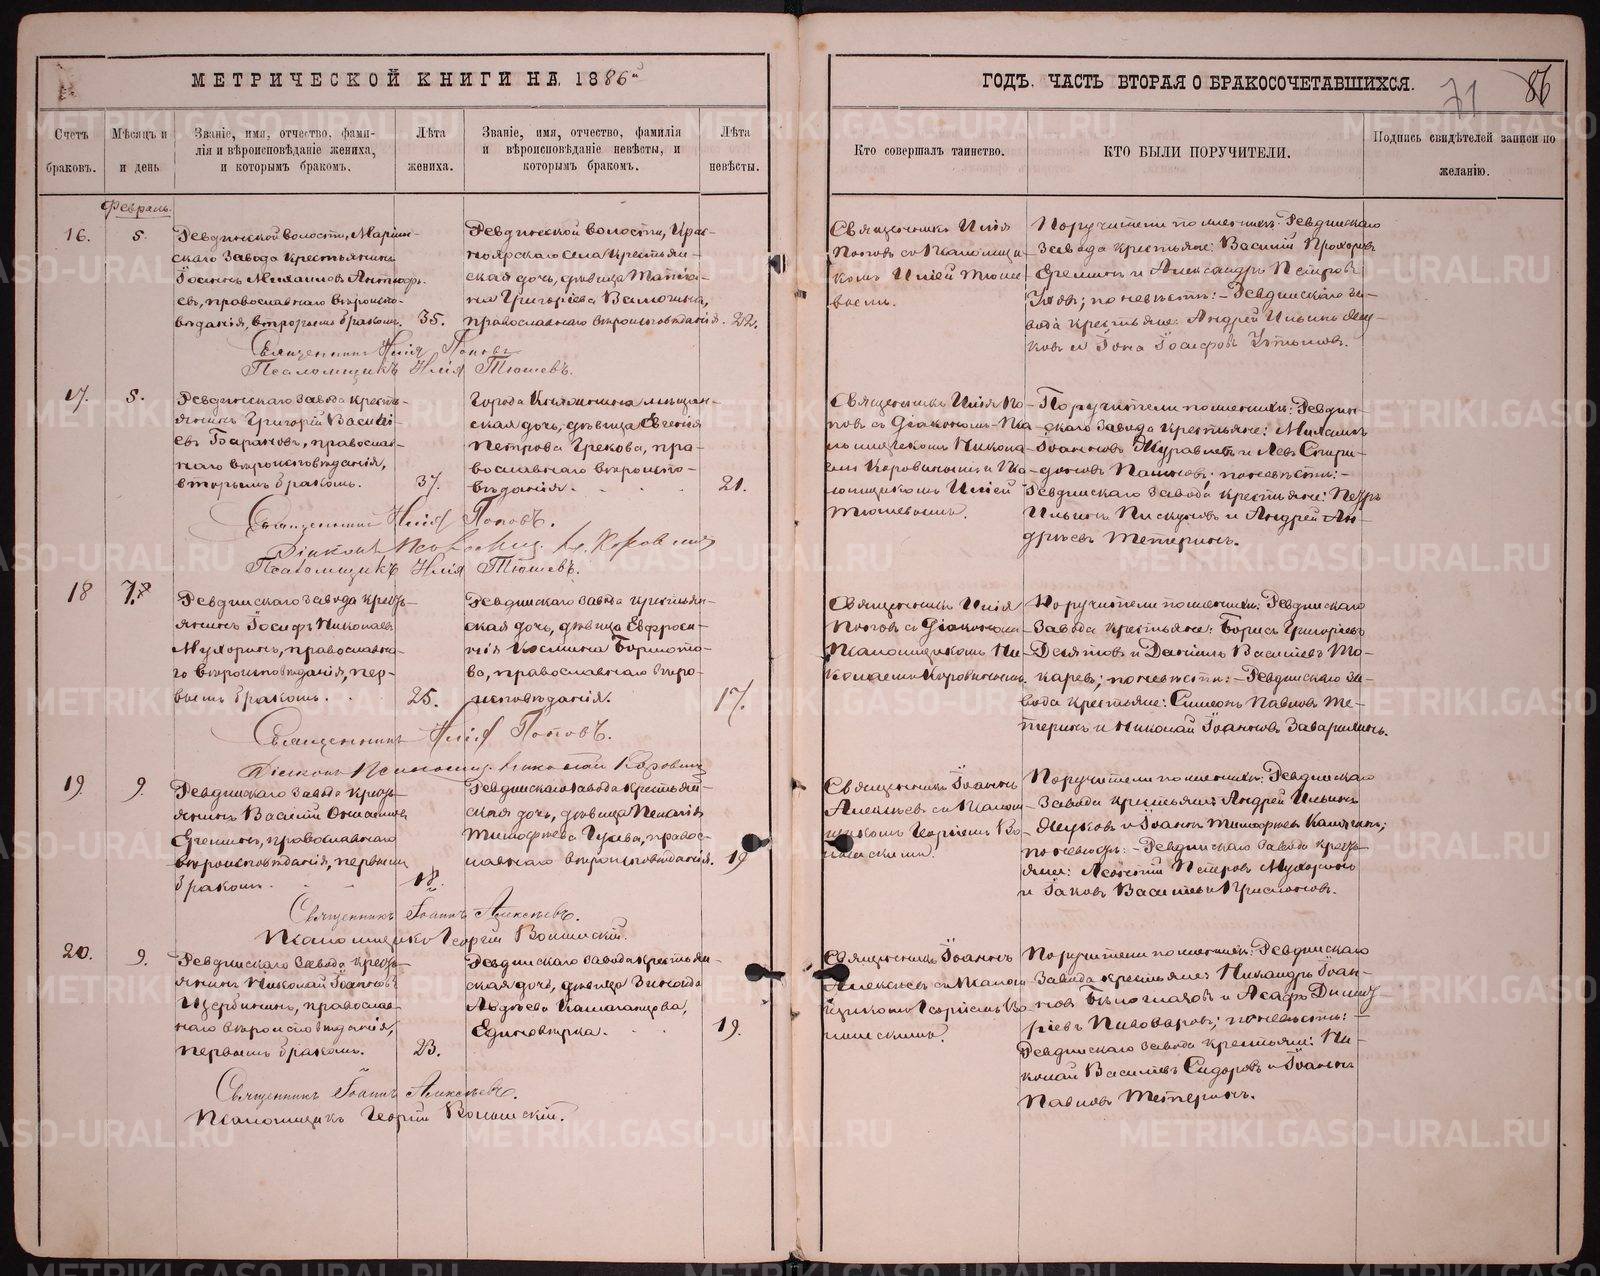 МЕТРИЧЕСКОЙ КНИГИ НА 1886й
ГОДЪ. ЧАСТЬ ВТОРАЯ О БРАКОСОЧЕТАВШИХСЯ.
71
86
Счетъ
браковъ.
Мѣсяцъ и
и день
Званіе, имя, отчество, фами-
лія и вѣроисповѣданіе жениха,
и которымъ бракомъ.
Лѣта
жениха.
Званіе, имя, отчество, фамилія
и вѣроисповѣданіе невѣсты, и
которымъ бракомъ.
Лѣта
невѣсты.
Кто совершалъ таинство.
КТО БЫЛИ ПОРУЧИТЕЛИ.
Подпись свидѣтелей записи по
желанію.
Февраль.
16.
5.
Ревдинской волости, Маріин-
скаго Завода крестьянинъ
Іоаннъ Михаиловъ
православнаго вѣроиспо-
вѣданія, вторымъ бракомъ.
35.
Ревдинской волости, Крас-
ноярскаго села крестьян-
ская дочь, дѣвица Татіа-
на Григоріева
православнаго вѣроисповѣданія.
22.
Священникъ Илія
Поповъ съ Псаломщи-
комъ Иліей Тюше-
вымъ.
Поручители по женихѣ: Ревдинскаго
Завода крестьяне: Василій Прохоровъ
Еремин и Александръ Петровъ
по невѣстѣ:- Ревдинскаго За-
вода крестьяне: Андрей Ильинъ Жу-
ковъ и Іона Іосифовъ
Священникъ Илія Поповъ
Псаломщикъ Илія Тюшевъ.
17.
5.
Ревдинскаго Завода кресть-
янинъ Григорій Василі-
евъ Барановъ, православ-
наго вѣроисповѣданія,
вторымъ бракомъ.
37.
Города мѣщан-
ская дочь, дѣвица Евгенія
Петрова Грекова, пра-
вославнаго вѣроиспо-
вѣданія.
21.
Священникъ Илія По-
повъ съ Діакономъ-Пса-
ломщикомъ Никола-
емъ Коровинымъ и Пса-
ломщикомъ Иліей
Тюшевымъ.
Поручители по женихѣ: Ревдин-
скаго Завода крестьяне: Михаилъ
Іоанновъ Журавлевъ и Левъ Спири-
доновъ по невѣстѣ:-
Ревдинскаго Завода крестьяне: Петръ
Ильинъ Пискуновъ и Андрей Ан-
дрѣевъ Тетеринъ.
Священникъ Илія Поповъ.
Діаконъ
Псаломщикъ Илія Тюшевъ.
18
7.
Ревдинскаго завода кресть-
янинъ Іосифъ Николаевъ
Мухоринъ, православна-
го вѣроисповѣданія, пер-
вымъ бракомъ.
25.
Ревдинскаго завода крестьян-
ская дочь, дѣвица Евфроси-
нія Космина Бормото-
ва, православнаго вѣро-
исповѣданія.
17.
Священникъ Илія
Поповъ съ Діакономъ
Псаломщикомъ Ни-
колаемъ Коровинымъ.
Поручители по женихѣ: Ревдинскаго
Завода крестьяне: Борисъ Григоріевъ
Десятовъ и Даніилъ Василіевъ То-
каревъ; по невѣстѣ:- Ревдинскаго За-
вода крестьяне: Симеонъ Павловъ Те-
теринъ и Николай Іоанновъ
Священникъ Илія Поповъ.
Діаконъ Псаломщ. Николай Коровинъ
19.
9.
Ревдинскаго Завода кресть-
янинъ Василій
Ереминъ, православнаго
вѣроисповѣданія, первымъ
бракомъ.
18.
Ревдинскаго Завода крестьян-
ская дочь, дѣвица Пелагія
Тимофѣева Гусева, право-
славнаго вѣроисповѣданія.
19
Священникъ Іоаннъ
Алексѣевъ съ Псалом-
щикомъ Георгіемъ
Поручители по женихѣ: Ревдинскаго
Завода крестьяне: Андрей Ильинъ
Жуковъ и Іоаннъ Тимофѣевъ
по невѣстѣ:- Ревдинскаго Завода кресть-
яне: Леонтій Петровъ Мухоринъ
и Іаковъ Василіевъ
Священникъ Іоаннъ Алексѣевъ.
Псаломщикъ Георгій
20.
9.
Ревдинскаго Завода кресть-
янинъ Николай Іоанновъ
Щербининъ, православ-
наго вѣроисповѣданія,
первымъ бракомъ.
23.
Ревдинскаго Завода крестьян-
ская дочь, дѣвица Зинаида
Единовѣрка.
19.
Священникъ Іоаннъ
Алексѣевъ съ Псалом-
щикомъ Георгіемъ
Поручители по женихѣ: Ревдинскаго
Завода крестьяне: Никандръ Іоан-
новъ Бѣлоглазовъ и Асафъ Димит-
ріевъ Пивоваровъ; по невѣстѣ:-
Ревдинскаго завода крестьяне: Ни-
колай Василіевъ Сидоровъ и Іоаннъ
Павловъ Тетеринъ.
Священникъ Іоаннъ Алексѣевъ.
Псаломщикъ Георгій
METRIKI.GASO-URAL.RU